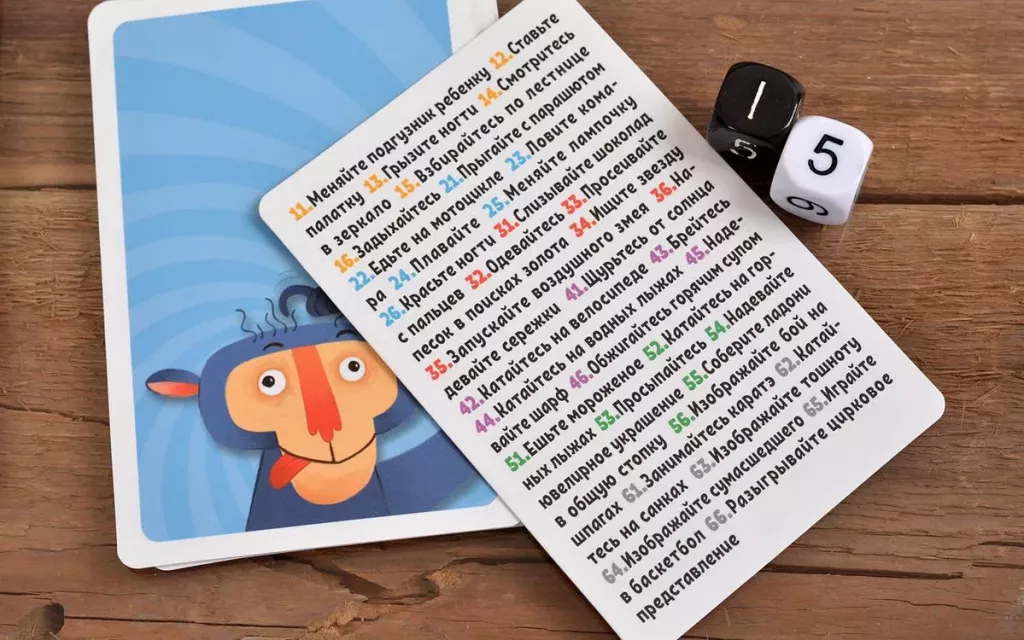 11.Меняйте подгузник ребенку 12.Ставьте
палатку 13.Грызите ногти 14.Смотритесь
в зеркало 15.Взбирайтесь по лестнице
16.Задыхайтесь 21.Прыгайте с парашютом
22.Едьте на мотоцикле 23.Ловите кома-
ра 24.Плавайте 25.Меняйте лампочку
26.Красьте ногти 31.Слизывайте шоколад
с пальцев 32.Одевайтесь 33.Просеивайте
песок в поисках золота 34.Ищите звезду
35.Запускайте воздушного змея 36.На-
девайте сережки 41.Щурьтесь от солнца
42.Катайтесь на велосипеде 43.Брейтесь
44.Катайтесь на водных лыжах 45.Наде-
вайте шарф 46.Обжигайтесь горячим супом
51.Ешьте мороженое 52.Катайтесь на гор-
ных лыжах 53.Просыпайтесь 54.Надевайте
ювелирное украшение 55.Соберите ладони
в общую стопку 56.Изображайте бой на
шпагах 61.Занимайтесь каратэ 62.Катай-
тесь на санках 63.Изображайте тошноту
64.Изображайте сумасшедшего 65.Играйте
в баскетбол 66.Разыгрывайте цирковое
представление
1
5
5
6